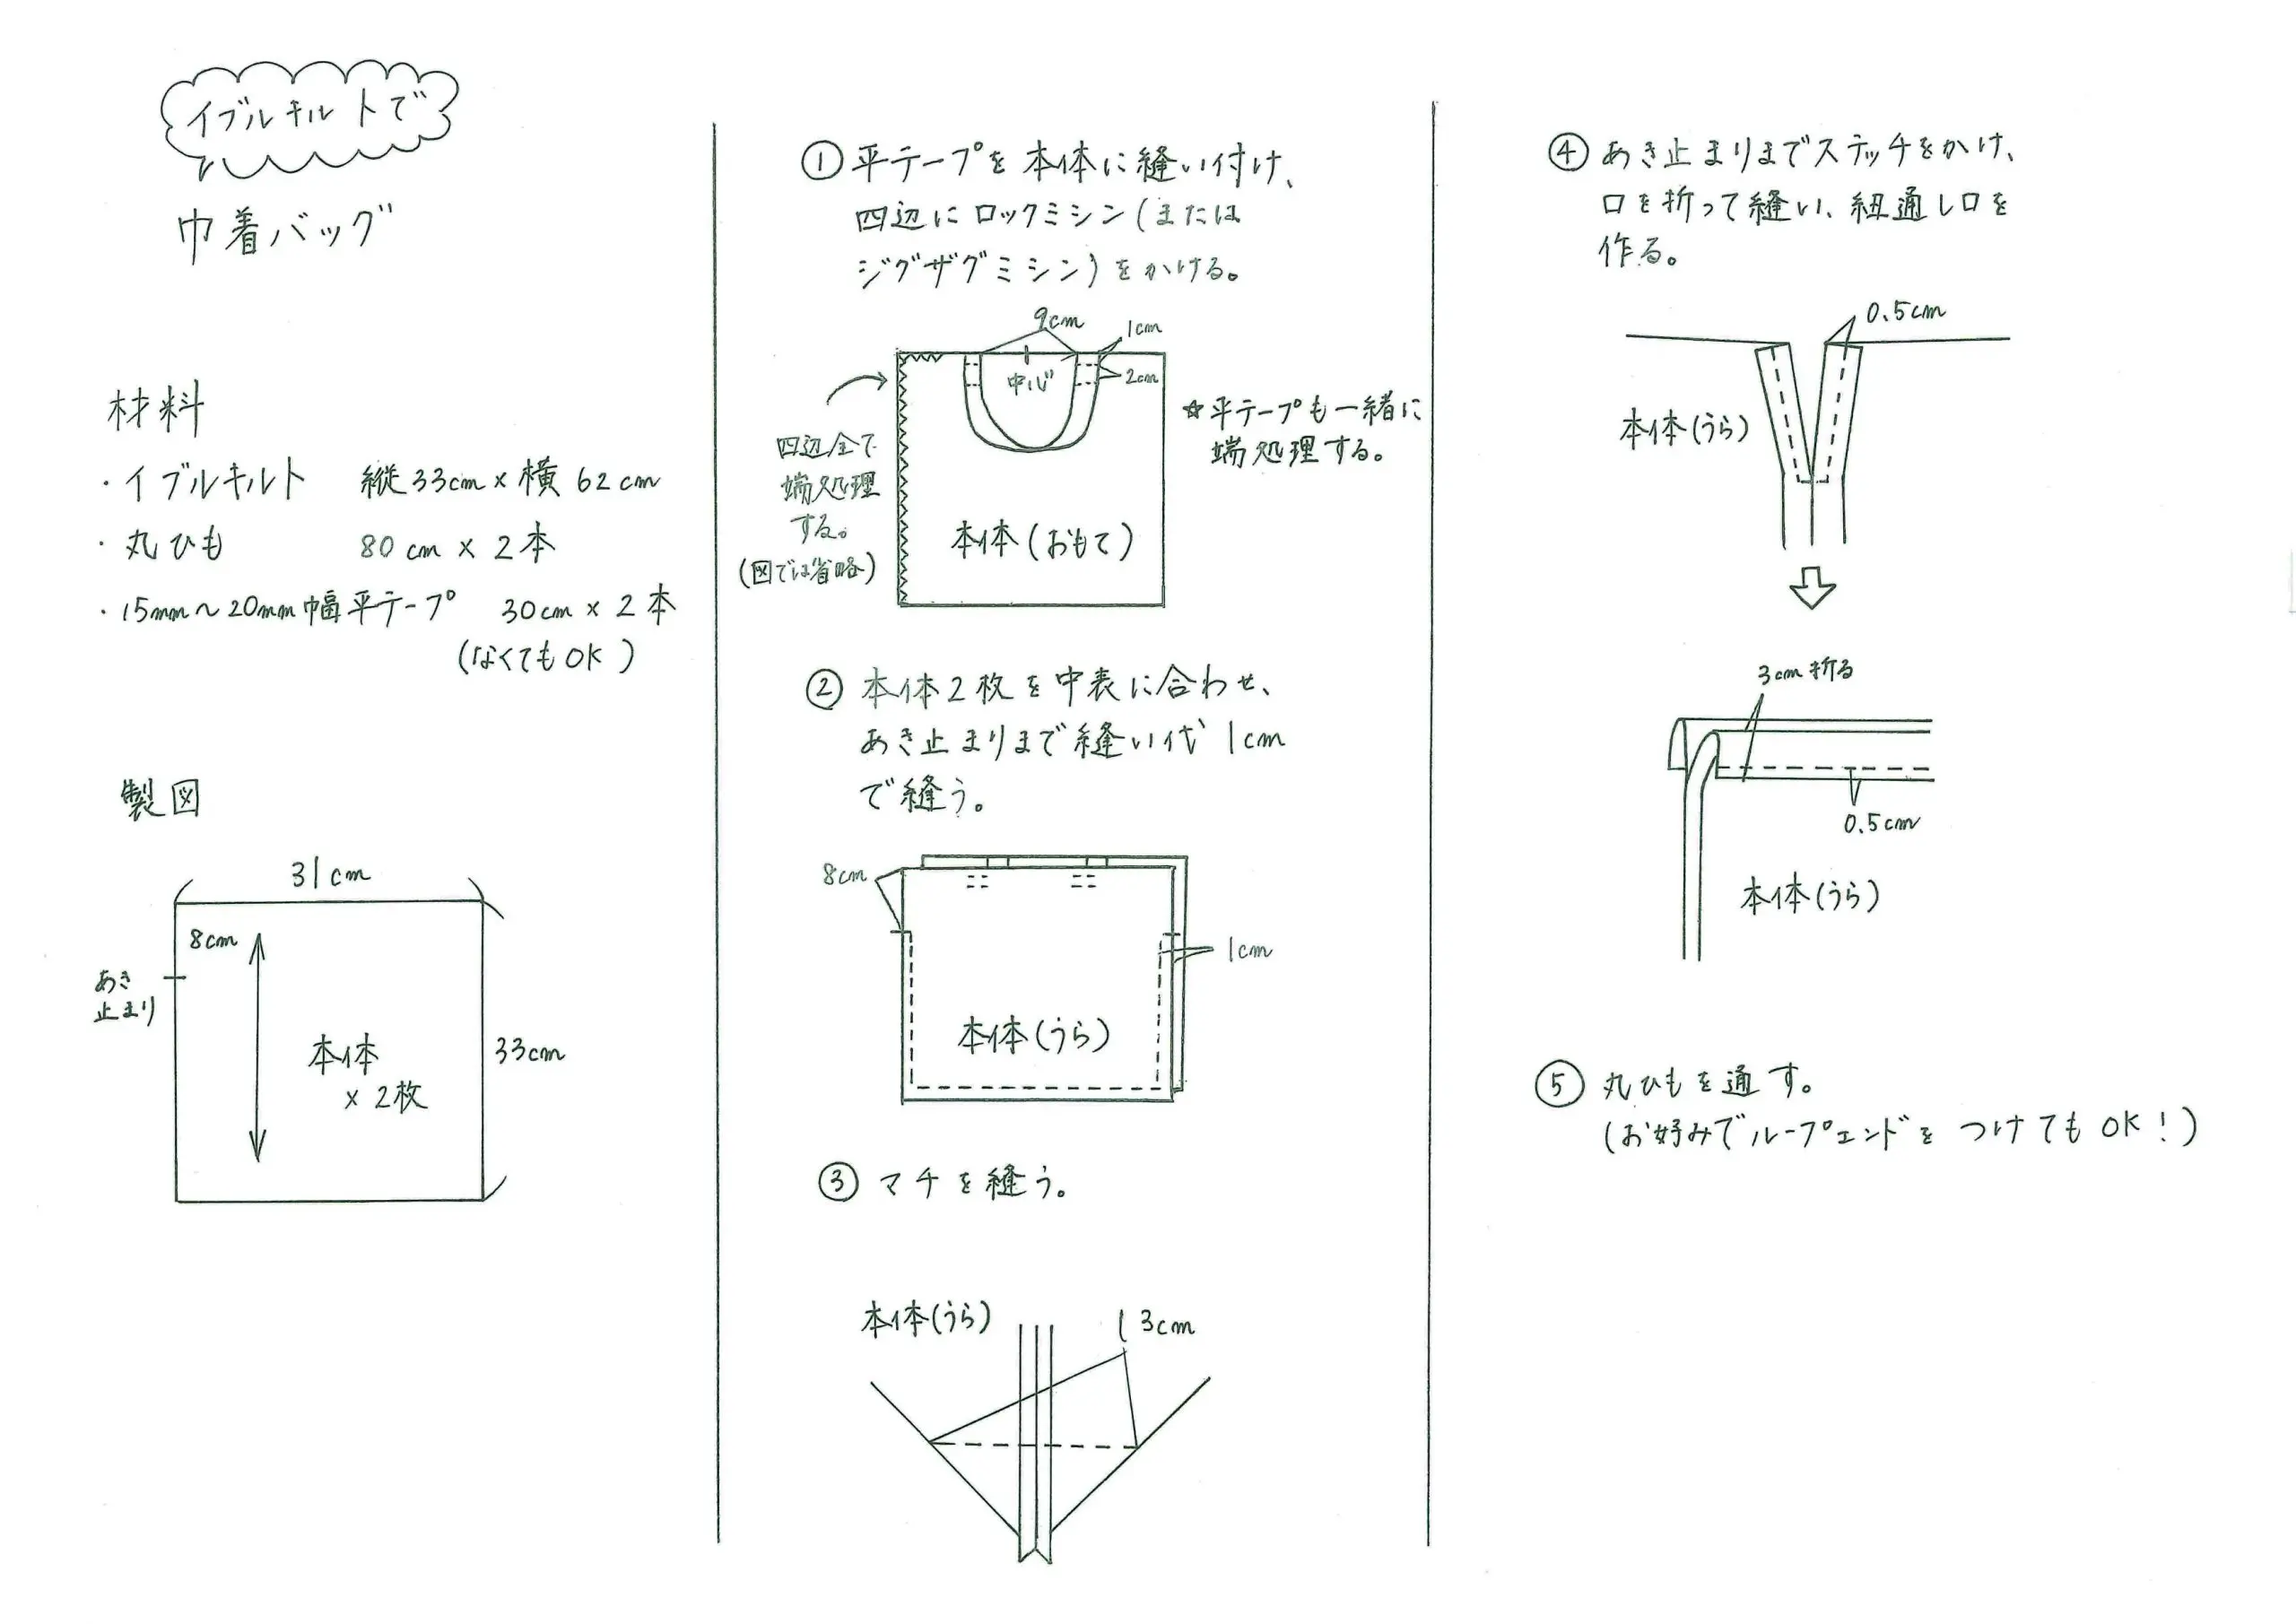 イブルキルトで
巾着バッグ
材料
・イブルキルト　縦33cm×横62cm
・丸ひも　80cm×2本
・15mm～20mm幅平テープ　30cm×2本
(なくてもOK)
製図
31cm
8cm
あき
止まり
本体
×2枚
33cm
① 平テープを本体に縫い付け、
四辺にロックミシン(または
ジグザグミシン)をかける。
9cm
1cm
中心
2cm
四辺全て
端処理
する。
(図では省略)
本体(おもて)
☆平テープも一緒に
端処理する。
② 本体2枚を中表に合わせ、
あき止まりまで縫い代1cm
で縫う。
8cm
1cm
本体(うら)
③ マチを縫う。
本体(うら)
13cm
④ あき止まりまでステッチをかけ、
口を折って縫い、紐通し口を
作る。
0.5cm
本体(うら)
3cm折る
0.5cm
本体(うら)
⑤ 丸ひもを通す。
(お好みでループエンドをつけてもOK!)